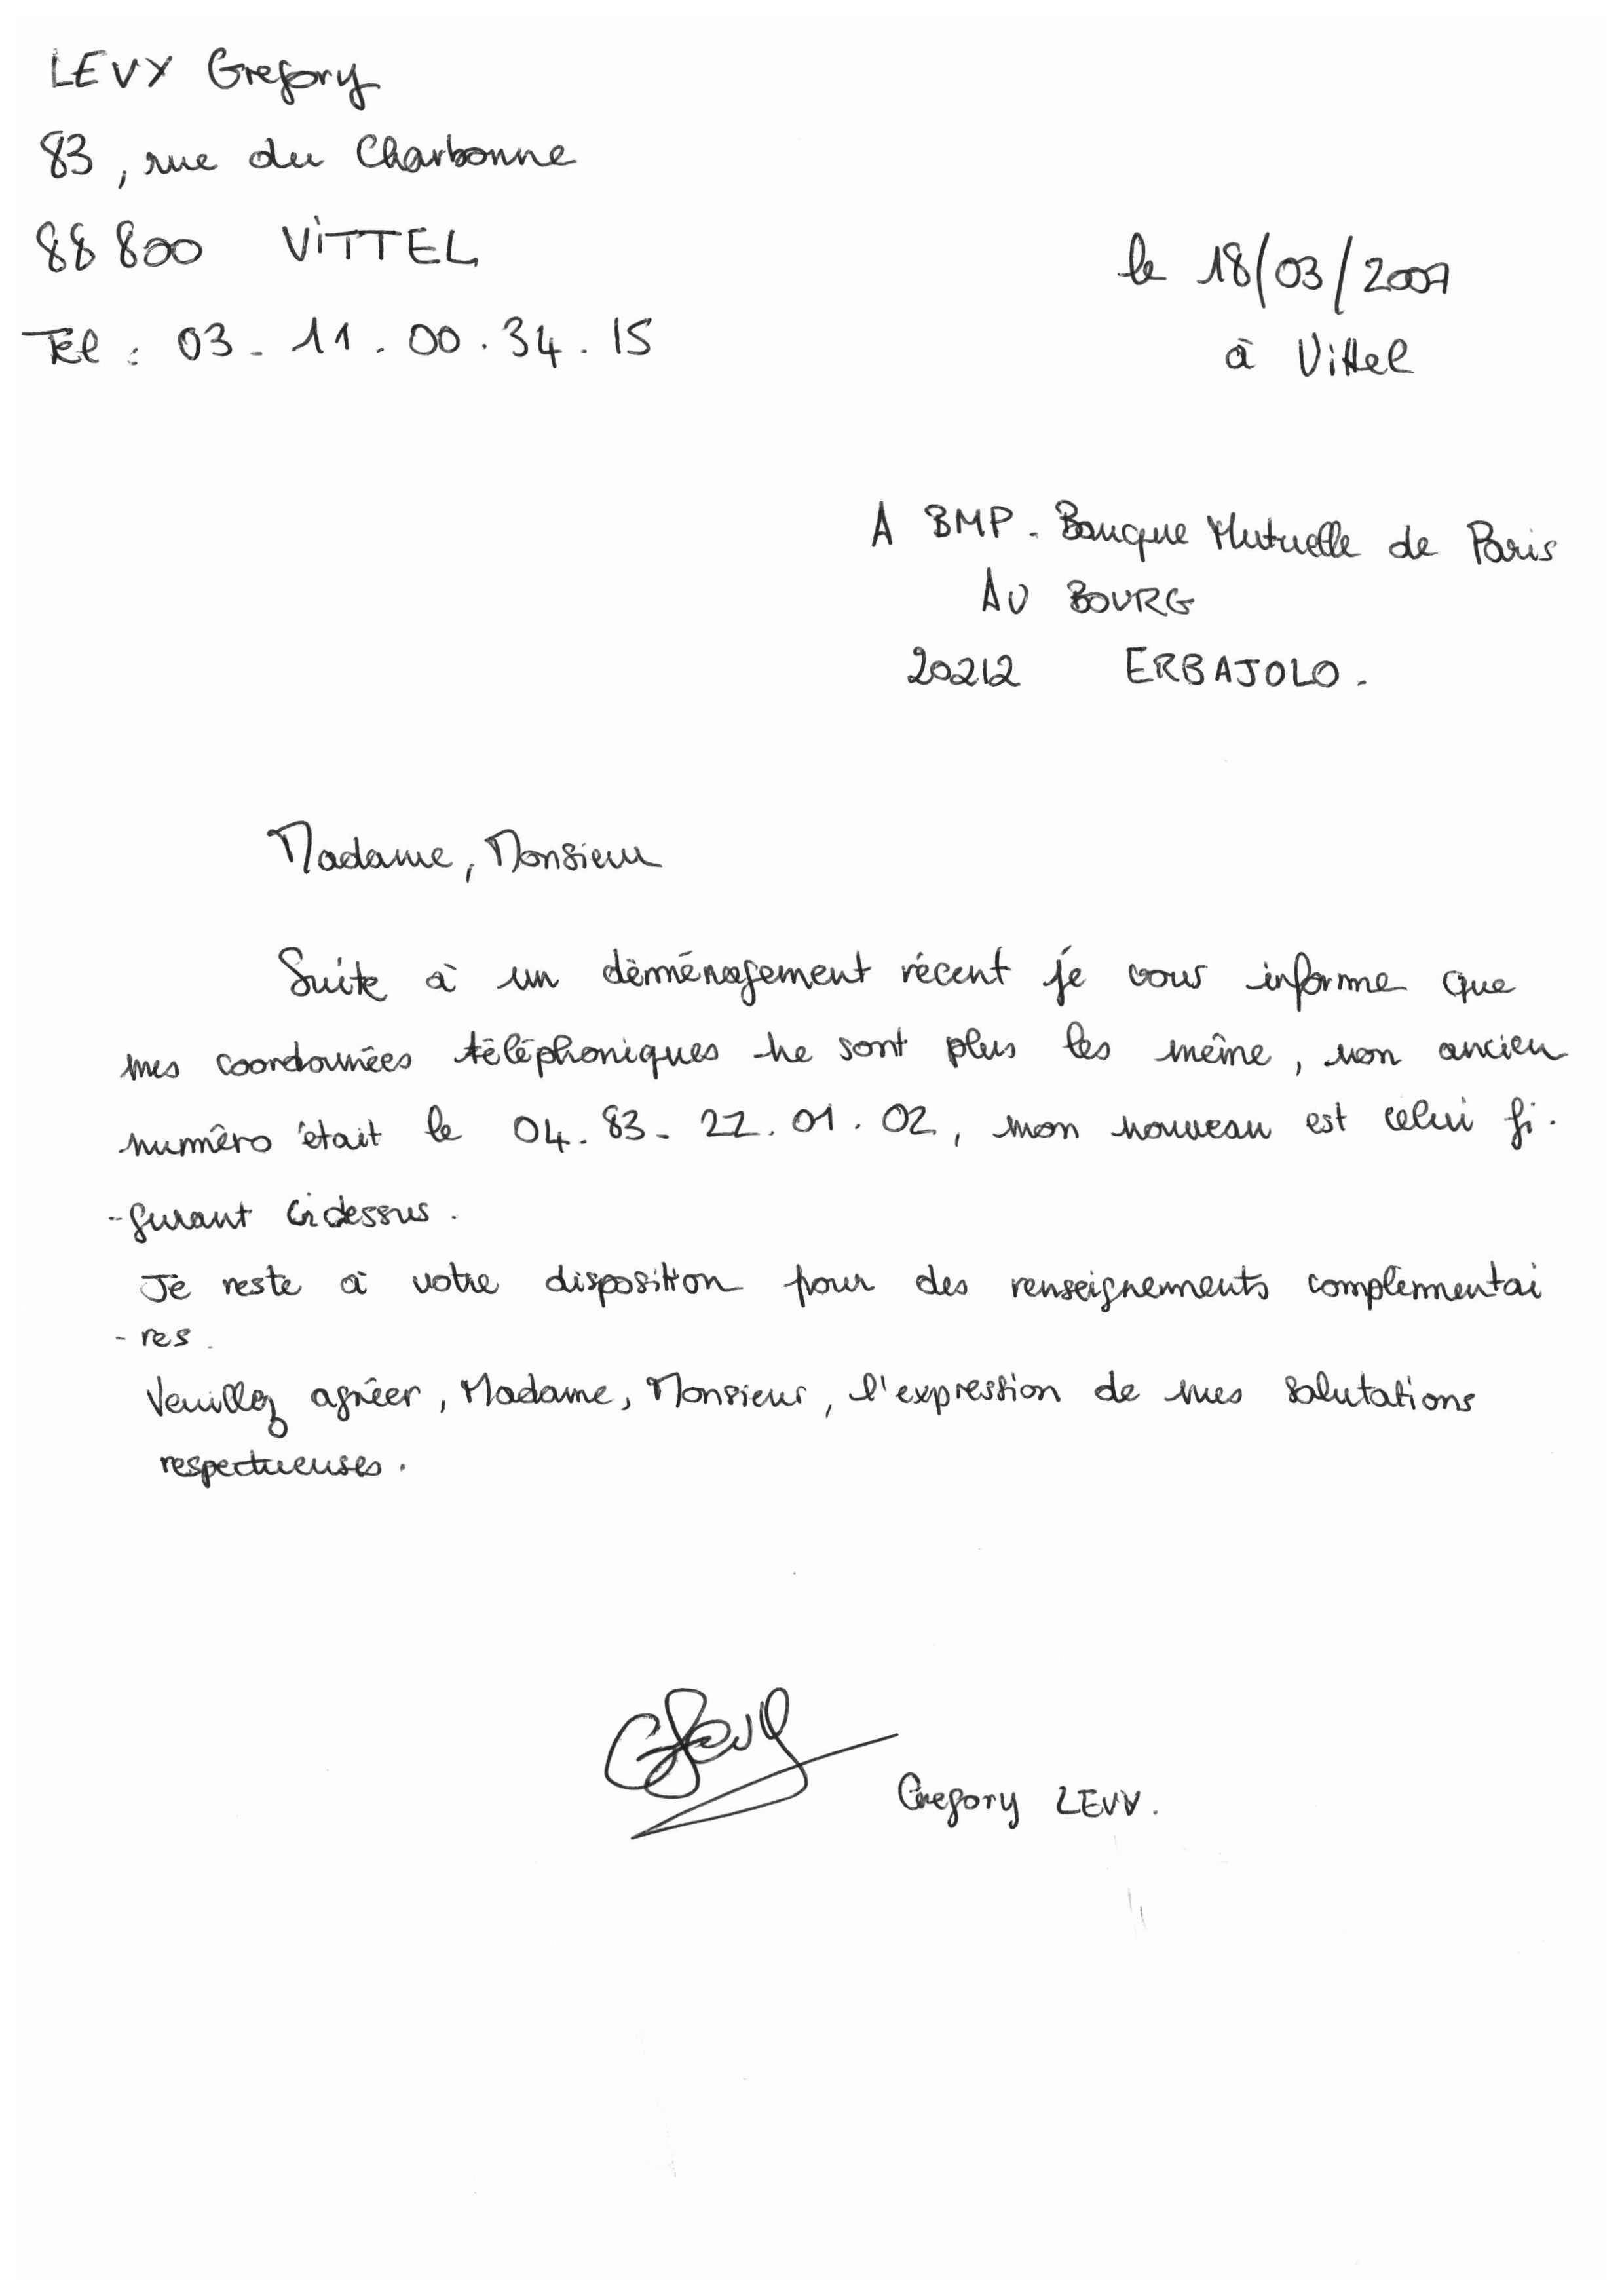 LEVY Gregory
83, rue du Charbonne
88800 VITTEL
Tel : 03-11.00.34.15
le 18/03/2007
à Vittel
A BMP. Banque Mutuelle de Paris
AU BOURG
20212 ERBAJOLO.
Madame, Monsieur
Suite à un déménagement récent je vous informe que
mes coordonnées téléphoniques ne sont plus les même, mon ancien
numéro était le 04.83-22.01.02, mon nouveau est celui fi.
-gurant ci dessus.
Je reste à votre disposition pour des renseignements complémentai
-res.
Veuillez agréer, Madame, Monsieur, l'expression de mes salutations
respectueuses.
GLevy
Gregory LEVY.